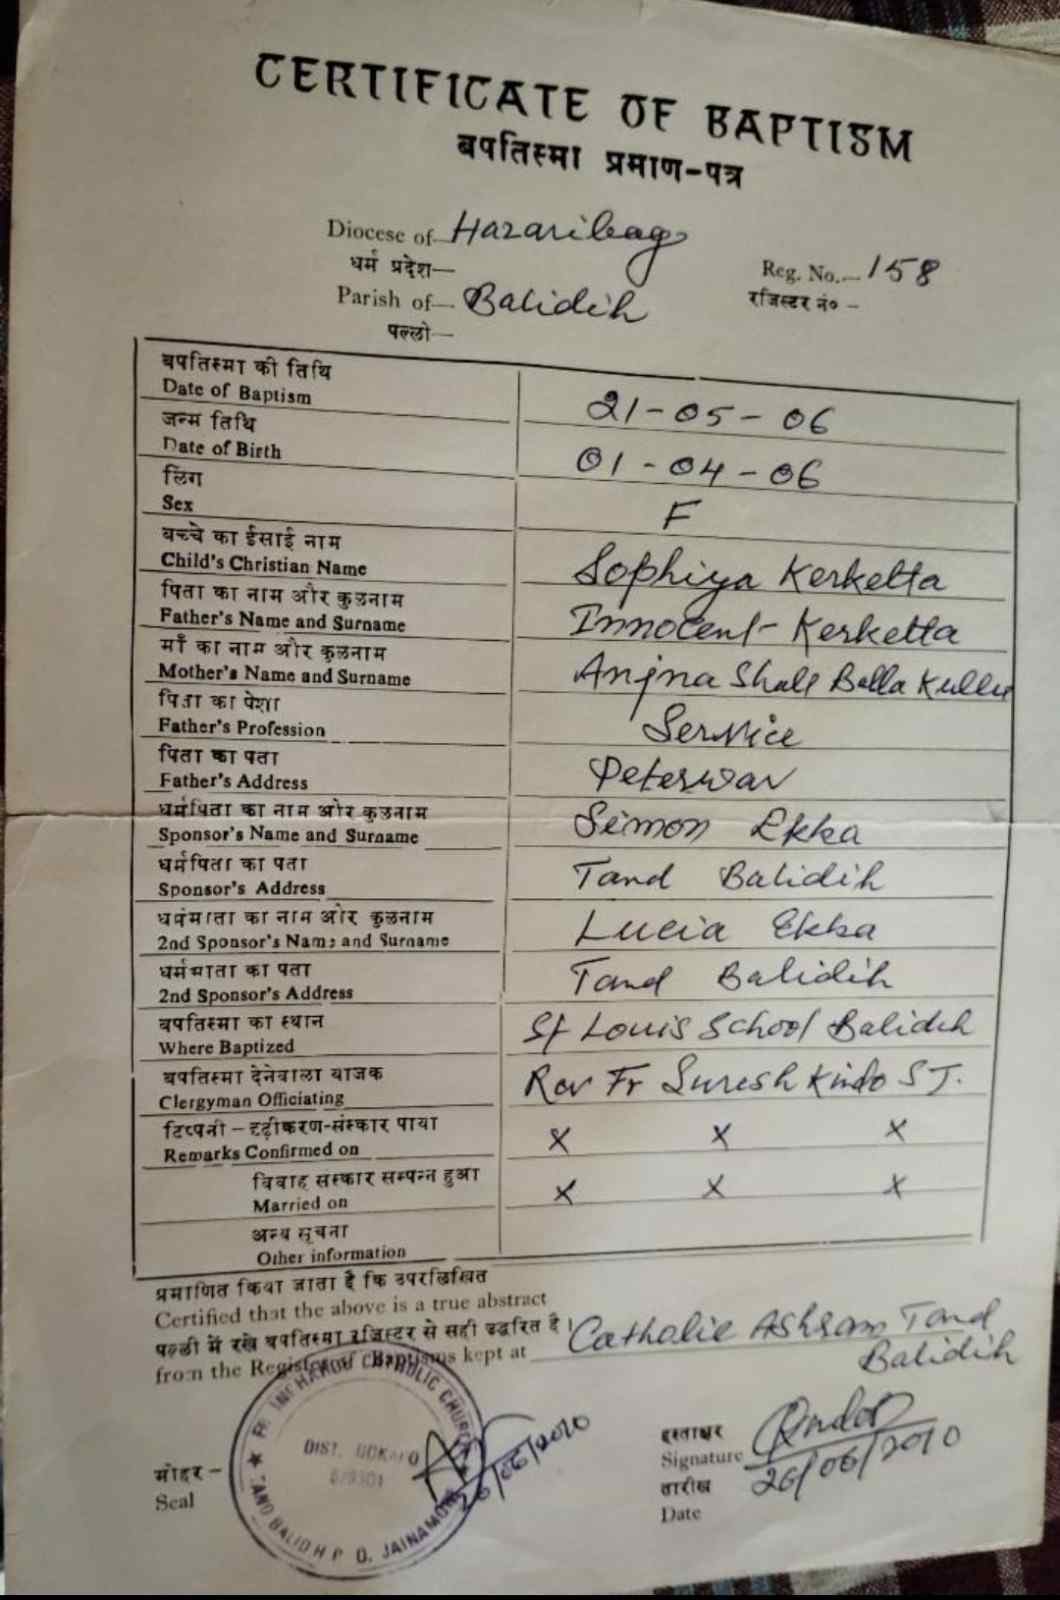 CERTIFICATE OF BAPTISM
बपतिस्मा प्रमाण-पत्र
Diocese of Hazaribag
धर्म प्रदेश—
Reg. No.— 158
रजिस्टर नं० -
Parish of— Balidih
पल्ली—
बपतिस्मा की तिथि
Date of Baptism 21-05-06
जन्म तिथि
Date of Birth 01-04-06
लिंग
Sex F
बच्चे का ईसाई नाम
Child's Christian Name Sophiya Kerketta
पिता का नाम और कुलनाम
Father's Name and Surname Innocent Kerketta
माँ का नाम और कुलनाम
Mother's Name and Surname Anjna Shall Bella Kullu
पिता का पेशा
Father's Profession Service
पिता का पता
Father's Address Peterwar
धर्मपिता का नाम और कुलनाम
Sponsor's Name and Surname Simon Ekka
धर्मपिता का पता
Sponsor's Address Tand Balidih
धर्ममाता का नाम और कुलनाम
2nd Sponsor's Name and Surname Lucia Ekka
धर्ममाता का पता
2nd Sponsor's Address Tand Balidih
बपतिस्मा का स्थान
Where Baptized St Louis School Balidih
बपतिस्मा देनेवाला याजक
Clergyman Officiating Rev Fr Suresh Kindo SJ.
टिप्पनी – दृढ़ीकरण-संस्कार पाया
Remarks Confirmed on x x x
विवाह संस्कार सम्पन्न हुआ
Married on x x x
अन्य सूचना
Other information
प्रमाणित किया जाता है कि उपरलिखित
Certified that the above is a true abstract
पल्ली में रखे बपतिस्मा रजिस्टर से सही उद्धरित है।
from the Register of Baptisms kept at Catholic Ashram Tand
Balidih
CATHOLIC CHURCH
DIST. BOKARO
TAND BALIDIH P. O. JAINAMORE
26/06/2010
मोहर –
Seal
हस्ताक्षर
Signature
26/06/2010
तारीख
Date